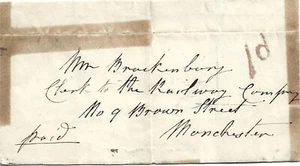 Mr Brackenbury
1d
Clerk to the Railway Company
No 9 Brown Street
Manchester
paid